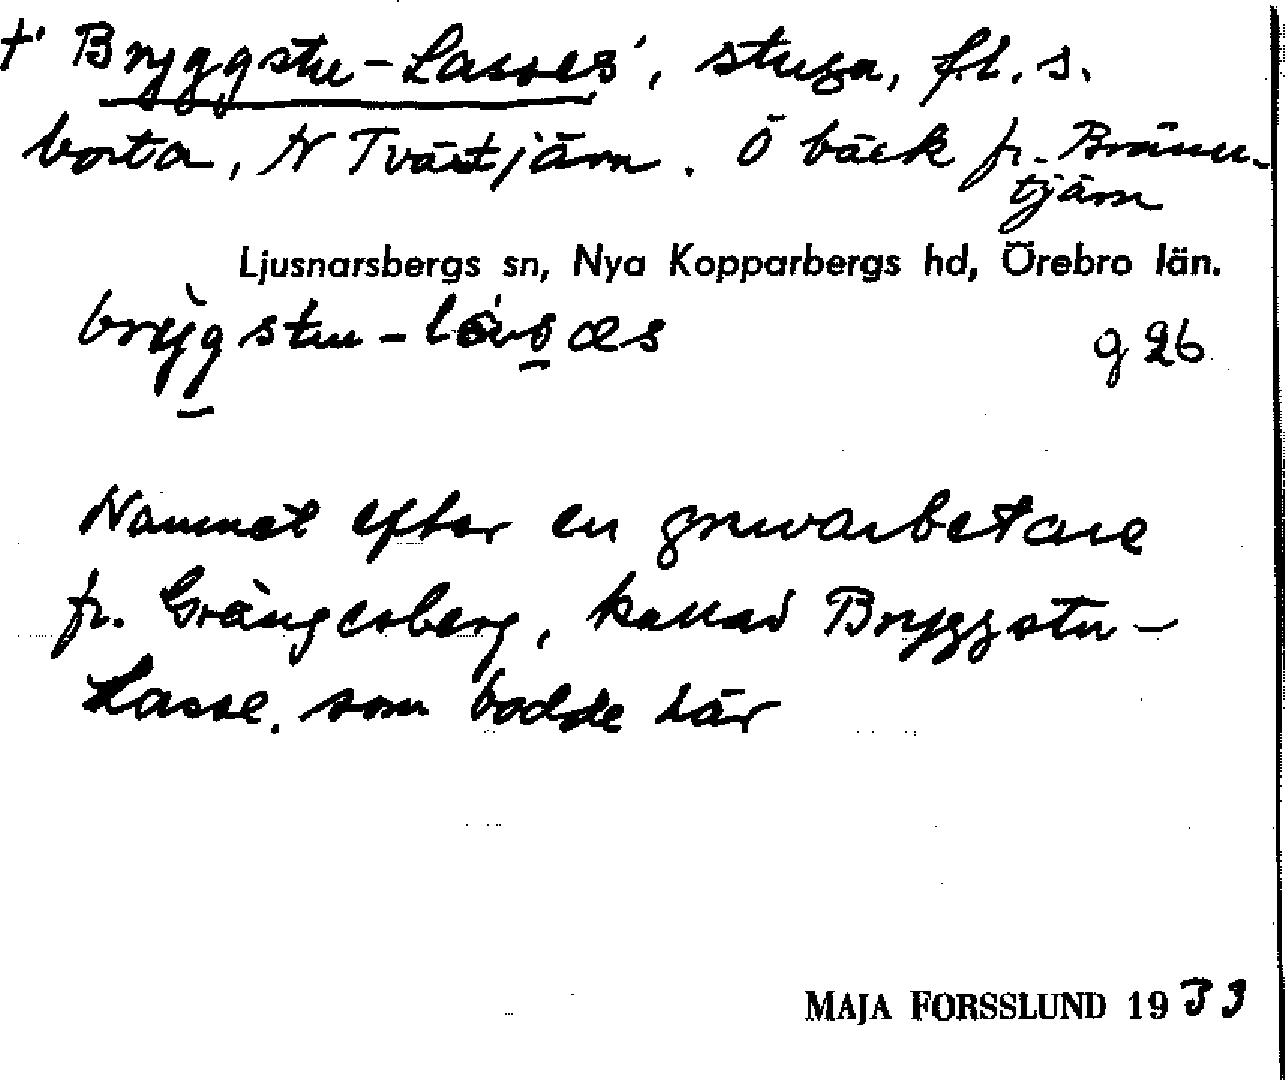 †'Bryggstu-Lasses', stuga, fl. s.
borta, N Tvärtjärn. Ö bäck fr. Bränn-
tjärn
Ljusnarsbergs sn, Nya Kopparbergs hd, Örebro län.
g 26
Namnet efter en gruvarbetare
fr. Grängesberg, kallad Bryggstu-
Lasse, som bodde här
MAJA FORSSLUND 1933